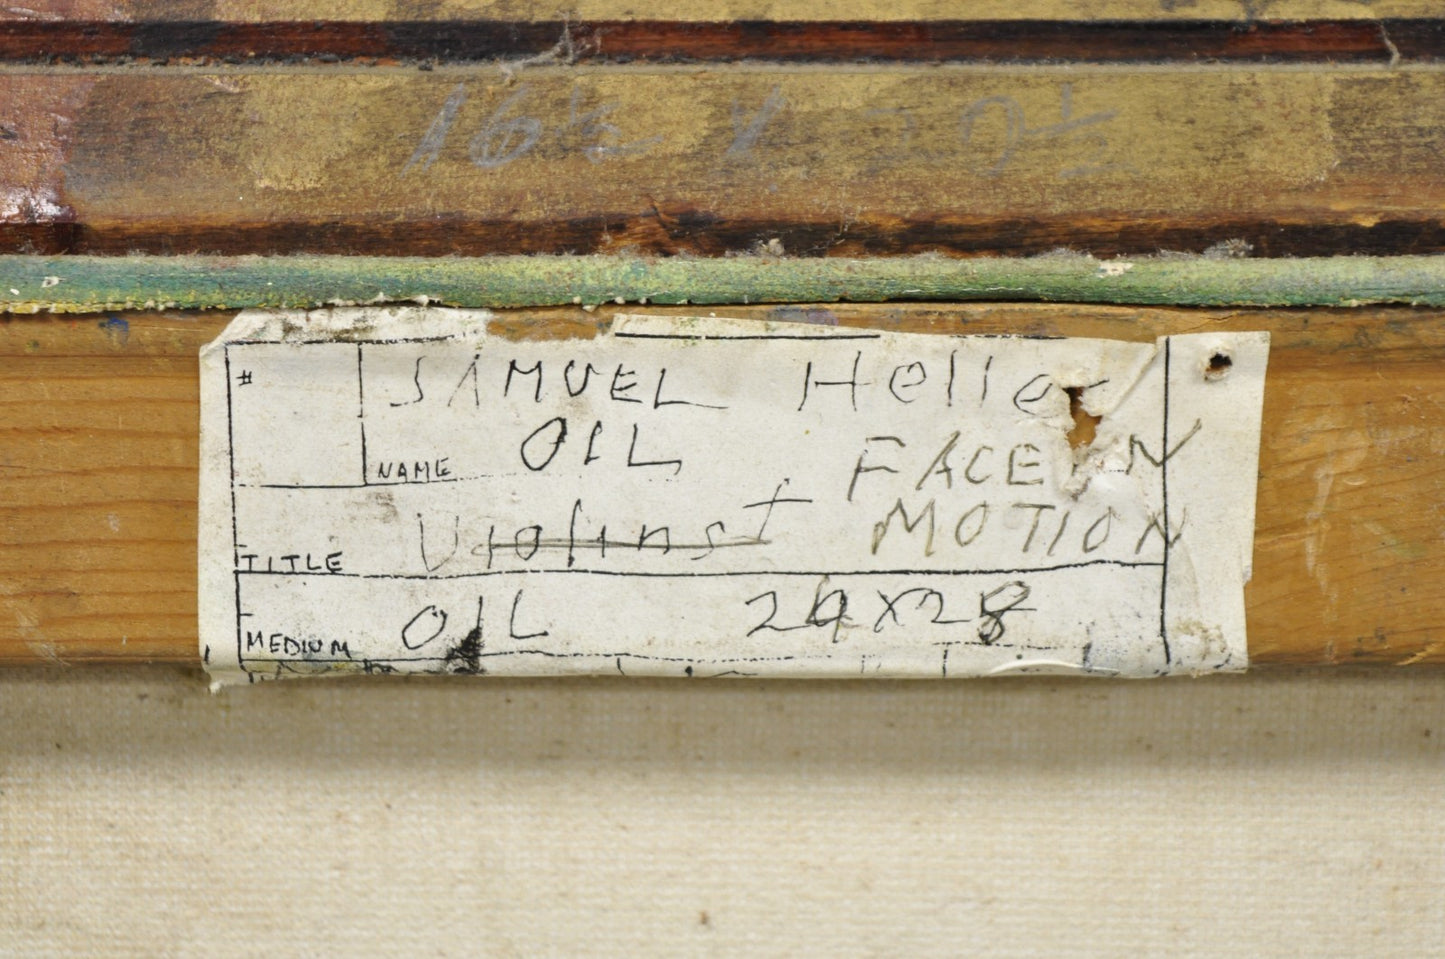 16 1/2 x 20 1/2
# SAMUEL Heller
NAME OIL FACE IN
TITLE Violinst MOTION
MEDIUM OIL 24x28